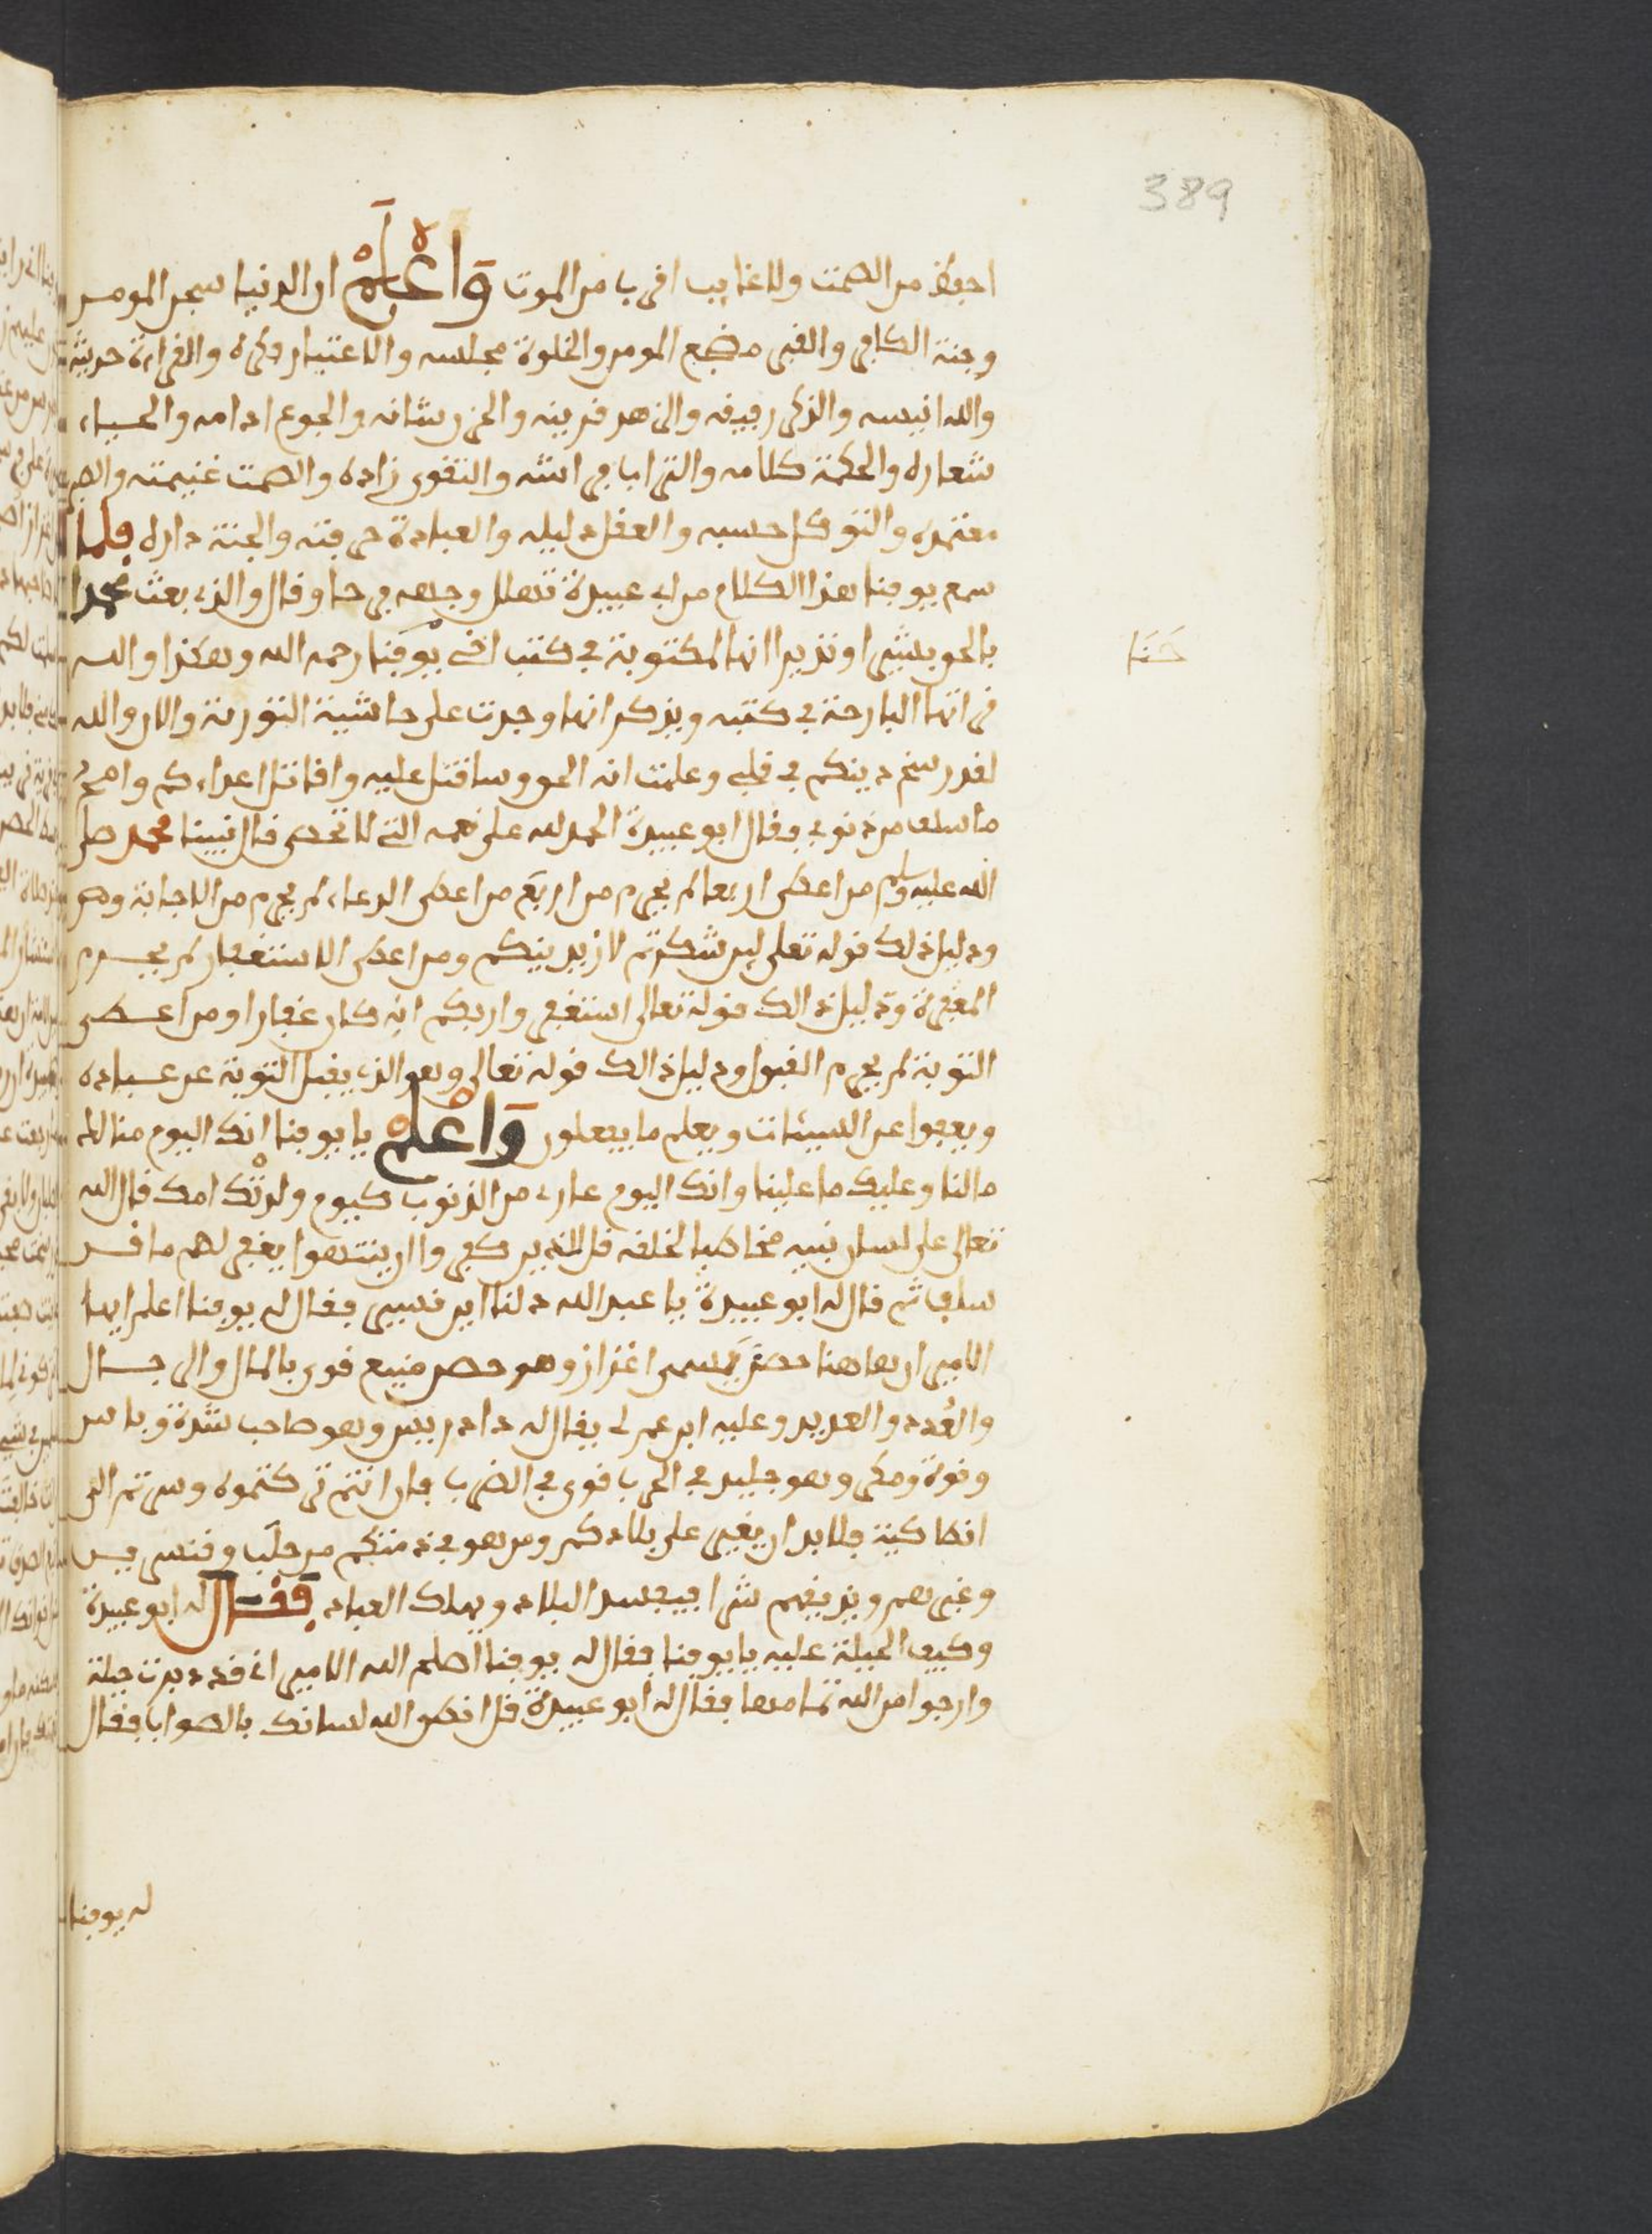 389
احفظ من الصمت ولا غايب اقرب من الموت وَاعْلَمْ ان الدنيا سجن المومن
وجنة الكافر والقبر مضجع المومن والخلوة مجلسه والاعتبار فكره والقراءة حديثه
والله انيسه والذكر رفيقه والزهد قرينه والحزن شانه والجوع ادامه والحياء
شعاره والحكمة كلامه والتراب فراشه والتقوى زاده والصمت غنيمته والصبر
معتمده والتوكل حسبه والعقل دليله والعبادة حرفته والجنة داره فلما
سمع يوقنا هذا الكلام من ابي عبيدة تهلل وجهه فرحا وقال والذي بعث محمدا
بالحق بشيرا ونذيرا انها لمكتوبة في كتب اخي يوقنا رحمه الله وهكذا والله
حَنَا
قراتها البارحة في كتبه ويذكر انها وجدت على حاشية التورية والان والله
لقد رسخ دينكم في قلبي وعلمت انه الحق وساقتل عليه واقاتل اعداءكم وامحو
ما سلف من ذنوبي فقال ابو عبيدة الحمد لله على نعمه التي لا تحصى قال نبينا محمد صلى
الله عليه وسلم من اعطى اربعا لم يحرم من اربع من اعطى الدعاء لم يحرم من الاجابة وهو
ودليل ذلك قوله تعلى لين شكرتم لازيدنكم ومن اعطى الاستغفار لم يحرم
المغفرة ودليل ذالك قوله تعالى استغفروا ربكم انه كان غفارا ومن اعطى
التوبة لم يحرم القبول ودليل ذالك قوله تعالى وهو الذي يقبل التوبة عن عباده
ويعفوا عن السيئات ويعلم ما يفعلون وَاعْلَمْ يا يوقنا انك اليوم منا لك
ما لنا وعليك ما علينا وانك اليوم عاري من الذنوب كيوم ولدتك امك قال الله
تعالى على لسان نبيه مخاطبا لخلقه قل للذين كفروا ان ينتهوا يغفر لهم ما قد
سلف ثم قال له ابو عبيدة يا عبد الله دلنا اين نسير فقال له يوقنا اعلم ايها
الامير ان هاهنا حصن يسمى اغزاز وهو حصن منيع قوي بالمال والرجال
والعُدد والعديد وعليه ابن عم لي يقال له دادريس وهو صاحب شدة وباس
وقوة ومكر وهو جليد في الحرب قوي في الضرب فان انتم تركتموه وسرتم الى
انطاكية فلا بد ان يغير على بلادكم ومن هو في ذمتكم من حلب وقنسرين
وغيرهم ويذيقهم شرا فيفسد البلاد ويهلك العباد فقال له ابو عبيدة
وكيف الحيلة عليه يا يوقنا فقال له يوقنا اصلح الله الامير اني قد دبرت حيلة
وارجوا من الله تمامها فقال له ابو عبيدة قل انطق الله لسانك بالصواب فقال
له يوقنا